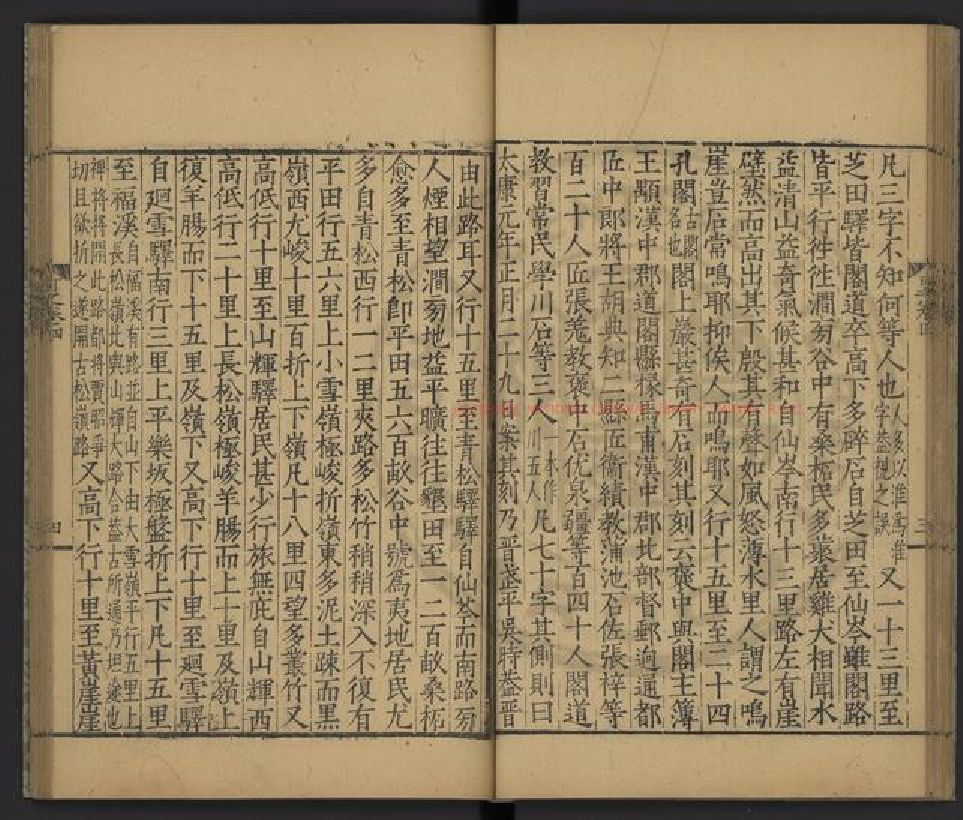 凡三字不知何等人也人多以淮爲隹字益視之誤又一十三里至
芝田驛皆閣道卒高下多碎石自芝田至仙岑雖閣路
皆平行往往澗旁谷中有桑柘民多藂居雞犬相聞水
益清山益奇氣候甚和自仙岑南行十三里路左有崖
壁然而高出其下殷其有聲如風怒薄水里人謂之鳴
崖豈石常鳴耶抑俟人而鳴耶又行十五里至二十四
孔閣古閣名也閣上巖甚奇有石刻其刻云褒中典閣主簿
王顒漢中郡道閣縣掾馬甫漢中郡北部督郵迥通都
匠中郎將王胡典知二縣匠衛績教蒲池石佐張梓等
百二十人匠張羌教褒中石佐泉疆等百四十人閣道
教習常民學川石等三人一本作川五人凡七十字其側則曰
太康元年正月二十九日案其刻乃晉武平吳時葢晉
由此路耳又行十五里至青松驛驛自仙岑而南路旁
人煙相望澗旁地益平曠往往墾田至一二百畝桑柘
愈多至青松卽平田五六百畝谷中號爲夷地居民尤
多自青松西行一二里夾路多松竹稍稍深入不復有
平田行五六里上小雪嶺極峻折嶺東多泥土疎而黑
嶺西尤峻十里百折上下嶺凡十八里四望多叢竹又
高低行十里至山輝驛居民甚少行旅無庇自山輝西
高低行二十里上長松嶺極峻羊腸而上十里及嶺上
復羊腸而下十五里及嶺下又高下行十里至廻雪驛
自廻雪驛南行三里上平樂坂極盤折上下凡十五里
至福溪自福溪有路並自山下由大雪嶺平行五里上長松嶺此與山輝大路合葢古所通乃坦途也
裨將將開此路都將賈昭爭切且欲折之遂開古松嶺路又高下行十里至黃崖崖